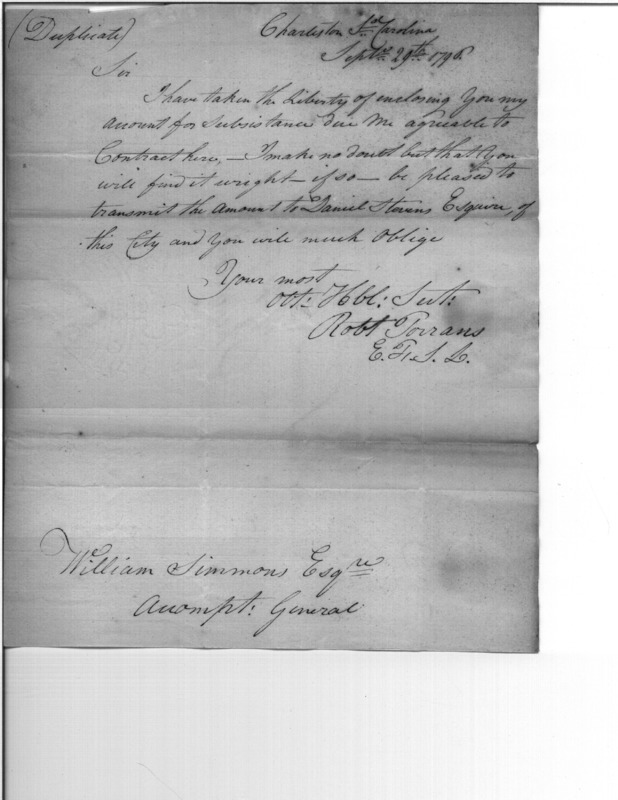 (Duplicate)
Charleston So. Carolina
Septr. 29th. 1796
Sir
I have taken the Liberty of enclosing You my
Account for Subsistance due Me agreable to
Contract here, — I make no doubt but that You
will find it wright — if so — be pleased to
transmit the Amount to Daniel Stevens Esquire, of
this City and You will much Oblige
Your most
Obt: Hbl: Sert:
Robt Torrans
William Simmons Esqre
Accompt: General